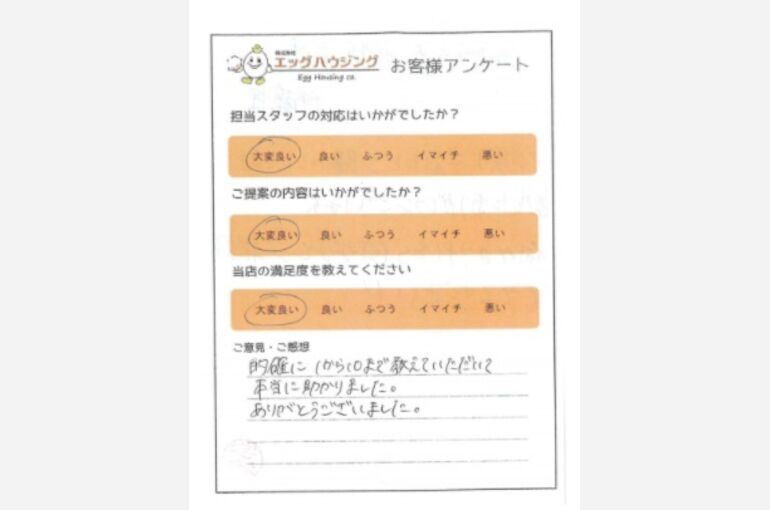 株式会社
エッグハウジング
Egg Housing co.
お客様アンケート
担当スタッフの対応はいかがでしたか？
大変良い 良い ふつう イマイチ 悪い
ご提案の内容はいかがでしたか？
大変良い 良い ふつう イマイチ 悪い
当店の満足度を教えてください
大変良い 良い ふつう イマイチ 悪い
ご意見・ご感想
的確に 1から10まで教えていただいて
本当に助かりました。
ありがとうございました。